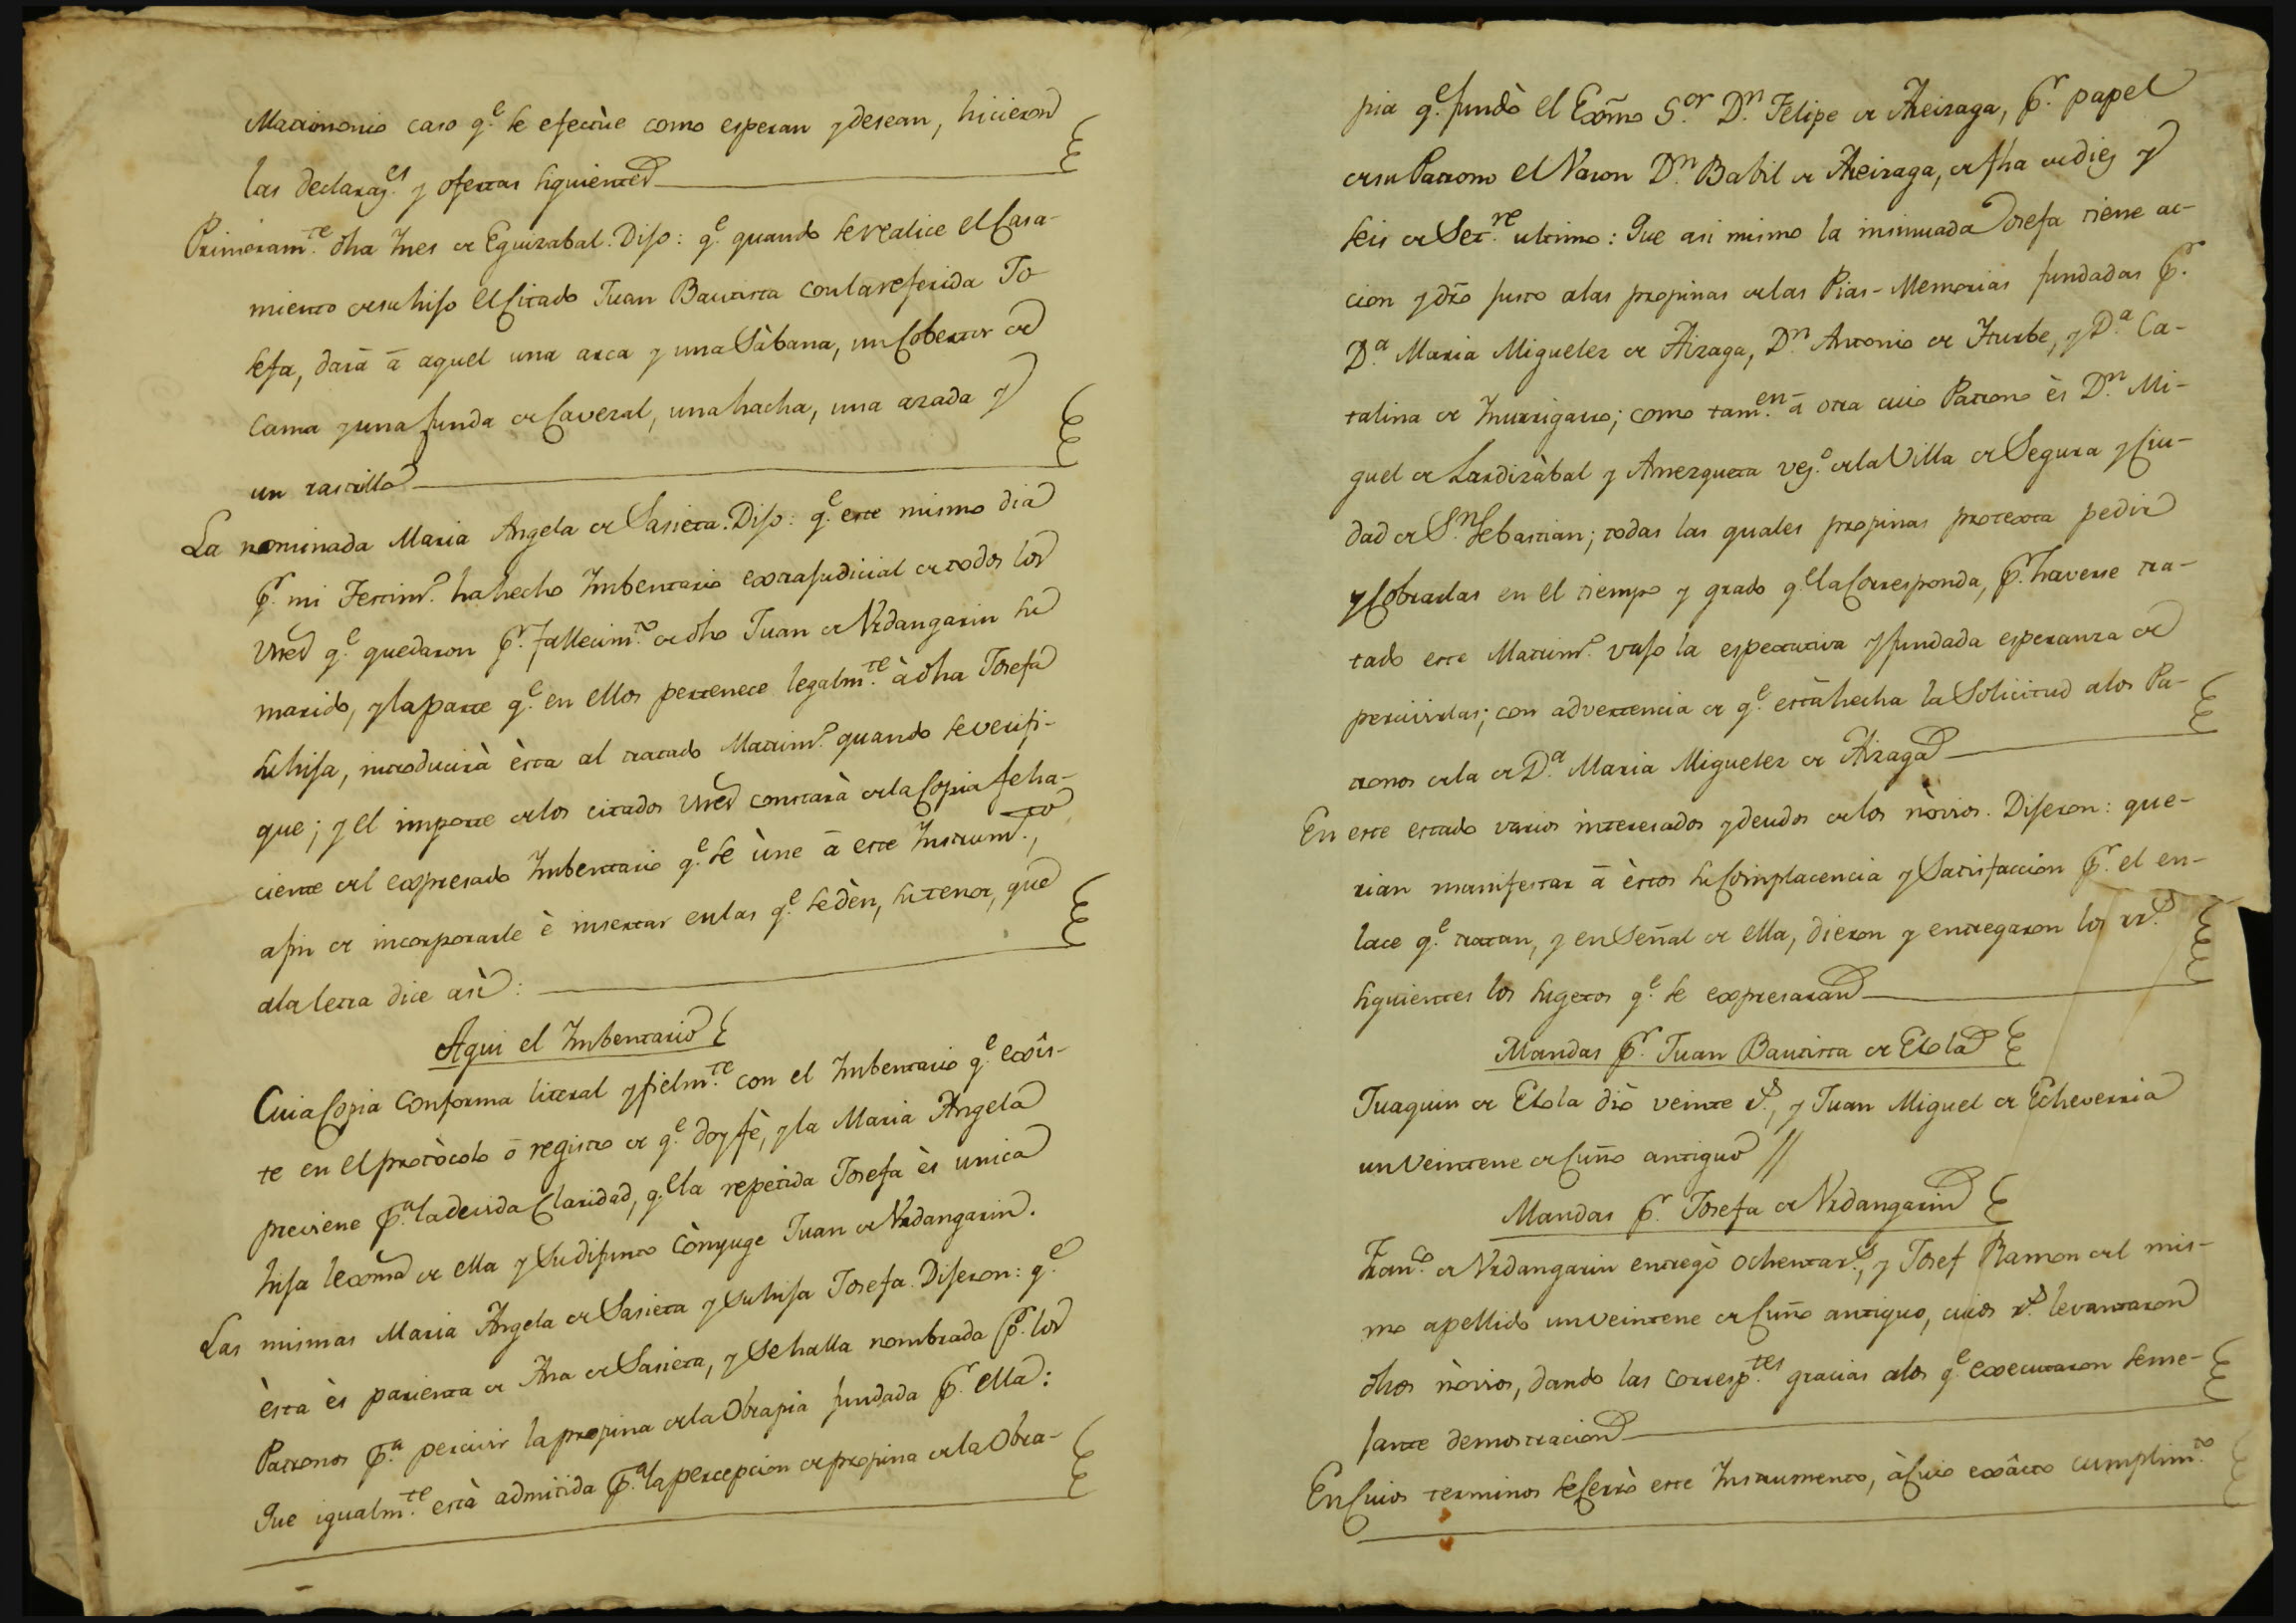 Matrimonio caso q.e se efectùe como esperan y desean, hicieron
las declaraz.es y ofertas siguientes
Primeram.te dha Ynes de Eguizabal. Dijo: q.e quando se realice el Casa-
miento de su hijo el Citado Juan Bautista con la referida Jo-
sefa, dará á aquel una arca y una Sàbana, un Cobertor de
Cama y una funda de Cavezal, una hacha, una azada y
un rastrillo
La nominada Maria Angela de Sasieta. Dijo: q.e este mismo dia
p.r mi Testim.o ha hecho Imbentario extrajudicial de todos los
vnes q.e quedaron p.r fallecim.to de dho Juan de Vrdangarin su
marido, y la parte q.e en ellos pertenece legalm.te à dha Josefa
su hija, introducirà èsta al tratado Matrim.o quando se verifi-
que; y el importe de los citados vnes constarà de la Copia feha-
ciente del expresado Imbentario q.e se ùne á este Instrum.to,
a fin de incorporarle è insertar en las q.e se dèn, su tenor, que
a la letra dice asì:
Aqui el Imbentario
Cuia Copia Conforma literal y fielm.te con el Imbentario q.e exîs-
te en el protòcolo ó registro de q.e doy fè, y la Maria Angela
previene p.a la devida Claridad, q.e la repetida Josefa ès unica
hija lexma de ella y su difunto Cònyuge Juan de Vrdangarin.
Las mismas Maria Angela de Sasieta y su hija Josefa. Dijeron: q.e
èsta ès parienta de Ana de Sasieta, y se halla nombrada p.r los
Patronos p.a percivir la propina de la Obrapia fundada p.r ella:
Que igualm.te està admitida p.a la percepcion de propina de la Obra-
pia q.e fundò el Exmo S.or D.n Felipe de Areizaga, p.r papel
de su Patrono el Varon D.n Babil de Areizaga, de fha de diez y
seis de Set.re ultimo: Que asi mismo la insinuada Josefa tiene ac-
cion y dro justo a las propinas de las Pias-Memorias fundadas p.r
D.a Maria Miguelez de Aizaga, D.n Antonio de Yturbe, y D.a Ca-
talina de Ynurrigarro; como tam.en á otra cuio Patrono ès D.n Mi-
guel de Lardizàbal y Amezqueta vez.o de la Villa de Segura y Ciu-
dad de S.n Sebastian; todas las quales propinas protexta pedir
y Cobrarlas en el tiempo y grado q.e la Corresponda, p.r haverse tra-
tado este Matrim.o vajo la espectativa y fundada esperanza de
percivirlas; con advertencia de q.e està hecha la Solicitud a los Pa-
tronos de la de D.a Maria Miguelez de Aizaga
En este estado varios interesados y deudos de los nòvios. Dijeron: que-
rian manifestar á èstos su Complacencia y Satisfaccion p.r el en-
lace q.e tratan, y en Señal de ella, dieron y entregaron los rr.s
siguientes los sugetos q.e se expresaran
Mandas p.r Juan Bautista de Elola
Juaquin de Elola diò veinte r.s, y Juan Miguel de Echeverria
un Veintene de Cuño antiguo //
Mandas p.r Josefa de Vrdangarin
Fran.co de Vrdangarin entregò ochenta r.s, y Josef Ramon del mis-
mo apellido un veintene de Cuño antiguo, cuios r.s levantaron
dhos nòvios, dando las corresp.tes gracias a los q.e executaron seme-
jante demostracion
En Cuios terminos se Cerrò este Instrumento, à Cuio exâcto cumplim.to